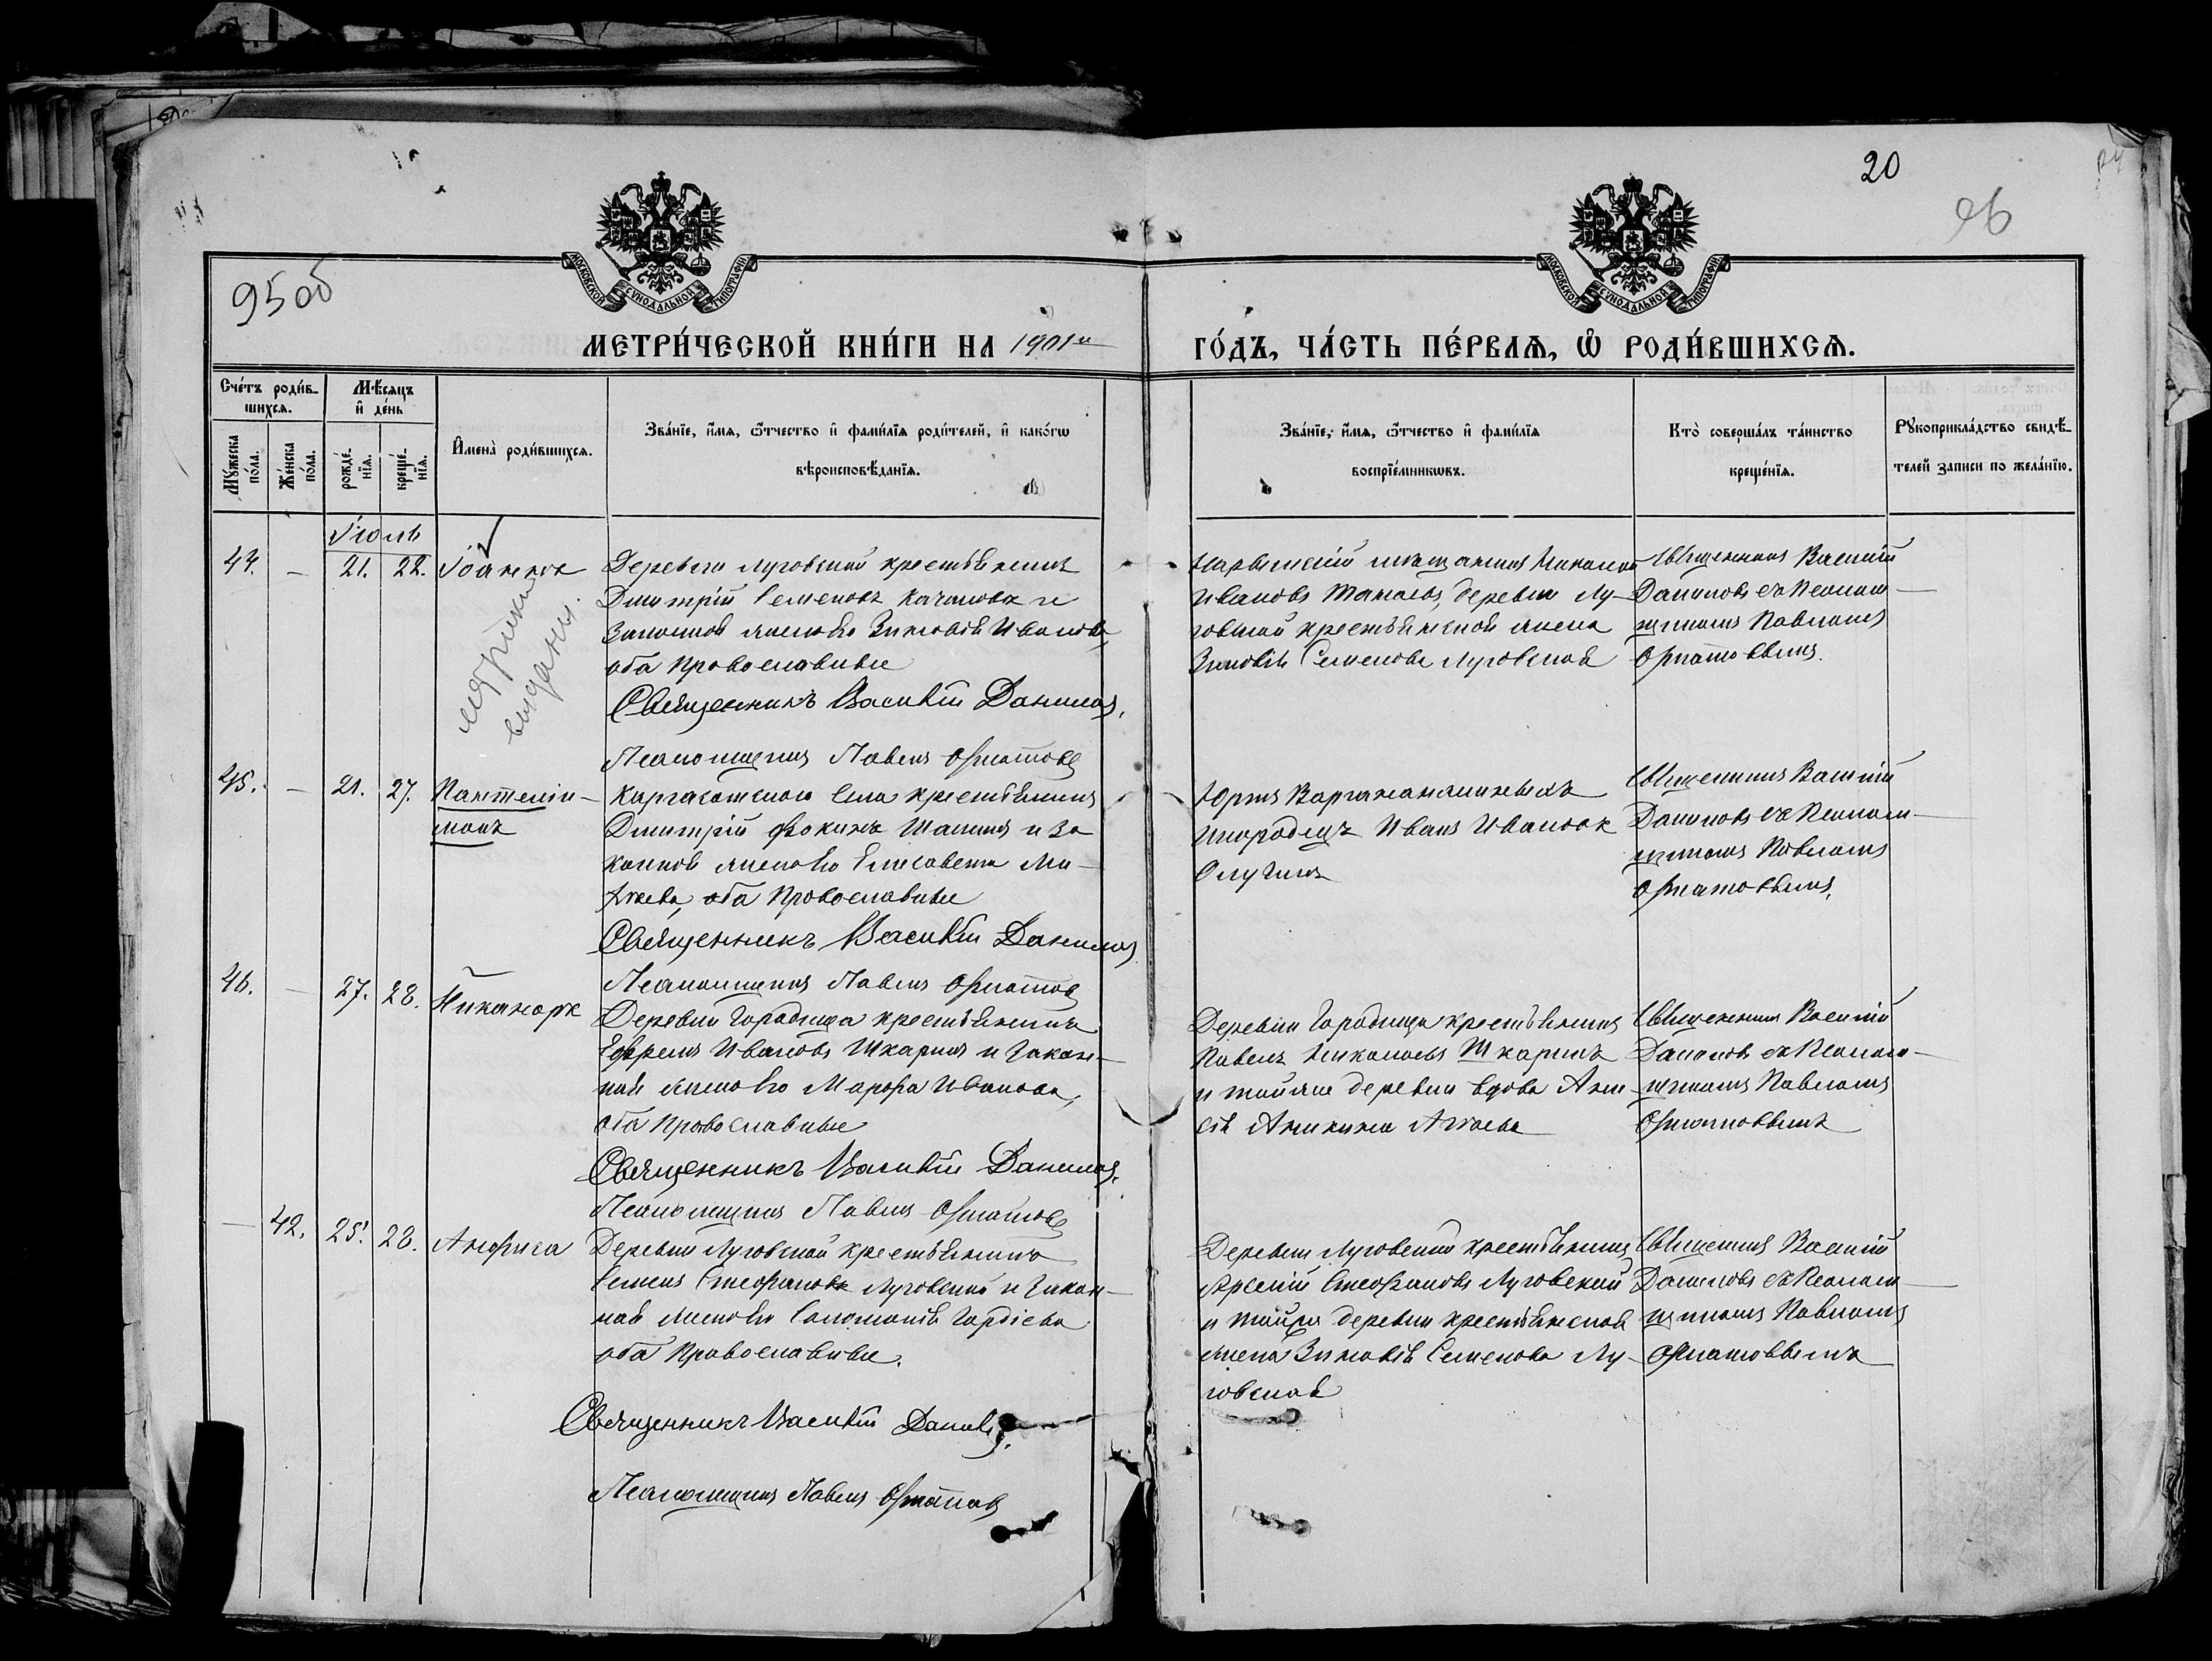 20
26
95об
МОСКОВСКОЙ СѴНОДАЛЬНОЙ ТИПОГРАФІИ
МОСКОВСКОЙ СѴНОДАЛЬНОЙ ТИПОГРАФІИ
МЕТРИ́ЧЕСКОЙ КНИ́ГИ НА 1901й ГО́ДЪ, ЧА́СТЬ ПЕ́РВАѦ, Ѡ РОДИ́ВШИХСѦ.
Сче́тъ роди́в-
шихсѧ.
Мѣ́сѧцъ
и҆ де́нь
Мꙋ́жеска
по́ла.
Же́нска
по́ла.
рожде́-
нїѧ.
креще́-
нїѧ.
И҆мена̀ роди́вшихсѧ.
Зва́нїе, и҆́мѧ, ѻ҆́тчество и҆ фами́лїѧ роди́телей, и҆ како́гѡ
вѣроисповѣ́данїѧ.
Зва́нїе, и҆́мѧ, ѻ҆́тчество и҆ фами́лїѧ
воспрїе́мникѡвъ.
Кто̀ соверша́лъ та́инство
креще́нїѧ.
Рꙋкоприкла́дство свидѣ́-
телей записи по жела́нїю.
Іюль
44. — 21. 22. Іоаннъ
метрика
выдана.
Деревни Луговской крестьянинъ
Дмитрій Семеновъ Качаловъ и
законная жена его Зиновія Иванова,
оба Православные
Священникъ Василій Даниловъ.
Псаломщикъ Павелъ Орнатовъ
Нарымскій мѣщанинъ Николай
Ивановъ Деревни Лу-
говской крестьянская жена
Зиновія Семенова Луговская
Священникъ Василій
Даниловъ съ Псалом-
щикомъ Павломъ
Орнатовымъ.
45. — 21. 27. Пантелеи-
монъ
Каргасокскаго села крестьянинъ
Дмитрій Фокинъ Шанинъ и за
конная жена его Елисавета Ми-
хеева, оба Православные
Священникъ Василій Даниловъ
Псаломщикъ Павелъ Орнатовъ
Юртъ Варгананжиныхъ
инородецъ Иванъ Ивановъ
Священникъ Василій
Даниловъ съ Псалом-
щикомъ Павломъ
Орнатовымъ.
46. — 27. 28. Никаноръ
Деревни Городища крестьянинъ
Ефремъ Ивановъ Шкаринъ и закон-
ная жена его Марфа Иванова,
оба Православные
Священникъ Василій Даниловъ.
Псаломщикъ Павелъ Орнатовъ
Деревни Городища крестьянинъ
Павелъ Николаевъ Шкаринъ
и тойже деревни вдова Ани-
сія Аникина
Священникъ Василій
Даниловъ съ Псалом-
щикомъ Павломъ
Орнатовымъ
— 42. 25. 28. Анфиса
Деревни Луговской крестьянинъ
Семенъ Стефановъ Луговской и закон-
ная жена его Соломонія Гордіева
оба Православные.
Священникъ Василій Даниловъ.
Псаломщикъ Павелъ Орнатовъ
Деревни Луговской крестьянинъ
Арсеній Стефановъ Луговской
и тойже деревни крестьянская
жена Зиновія Семенова Лу-
говская
Священникъ Василій
Даниловъ съ Псалом-
щикомъ Павломъ
Орнатовымъ